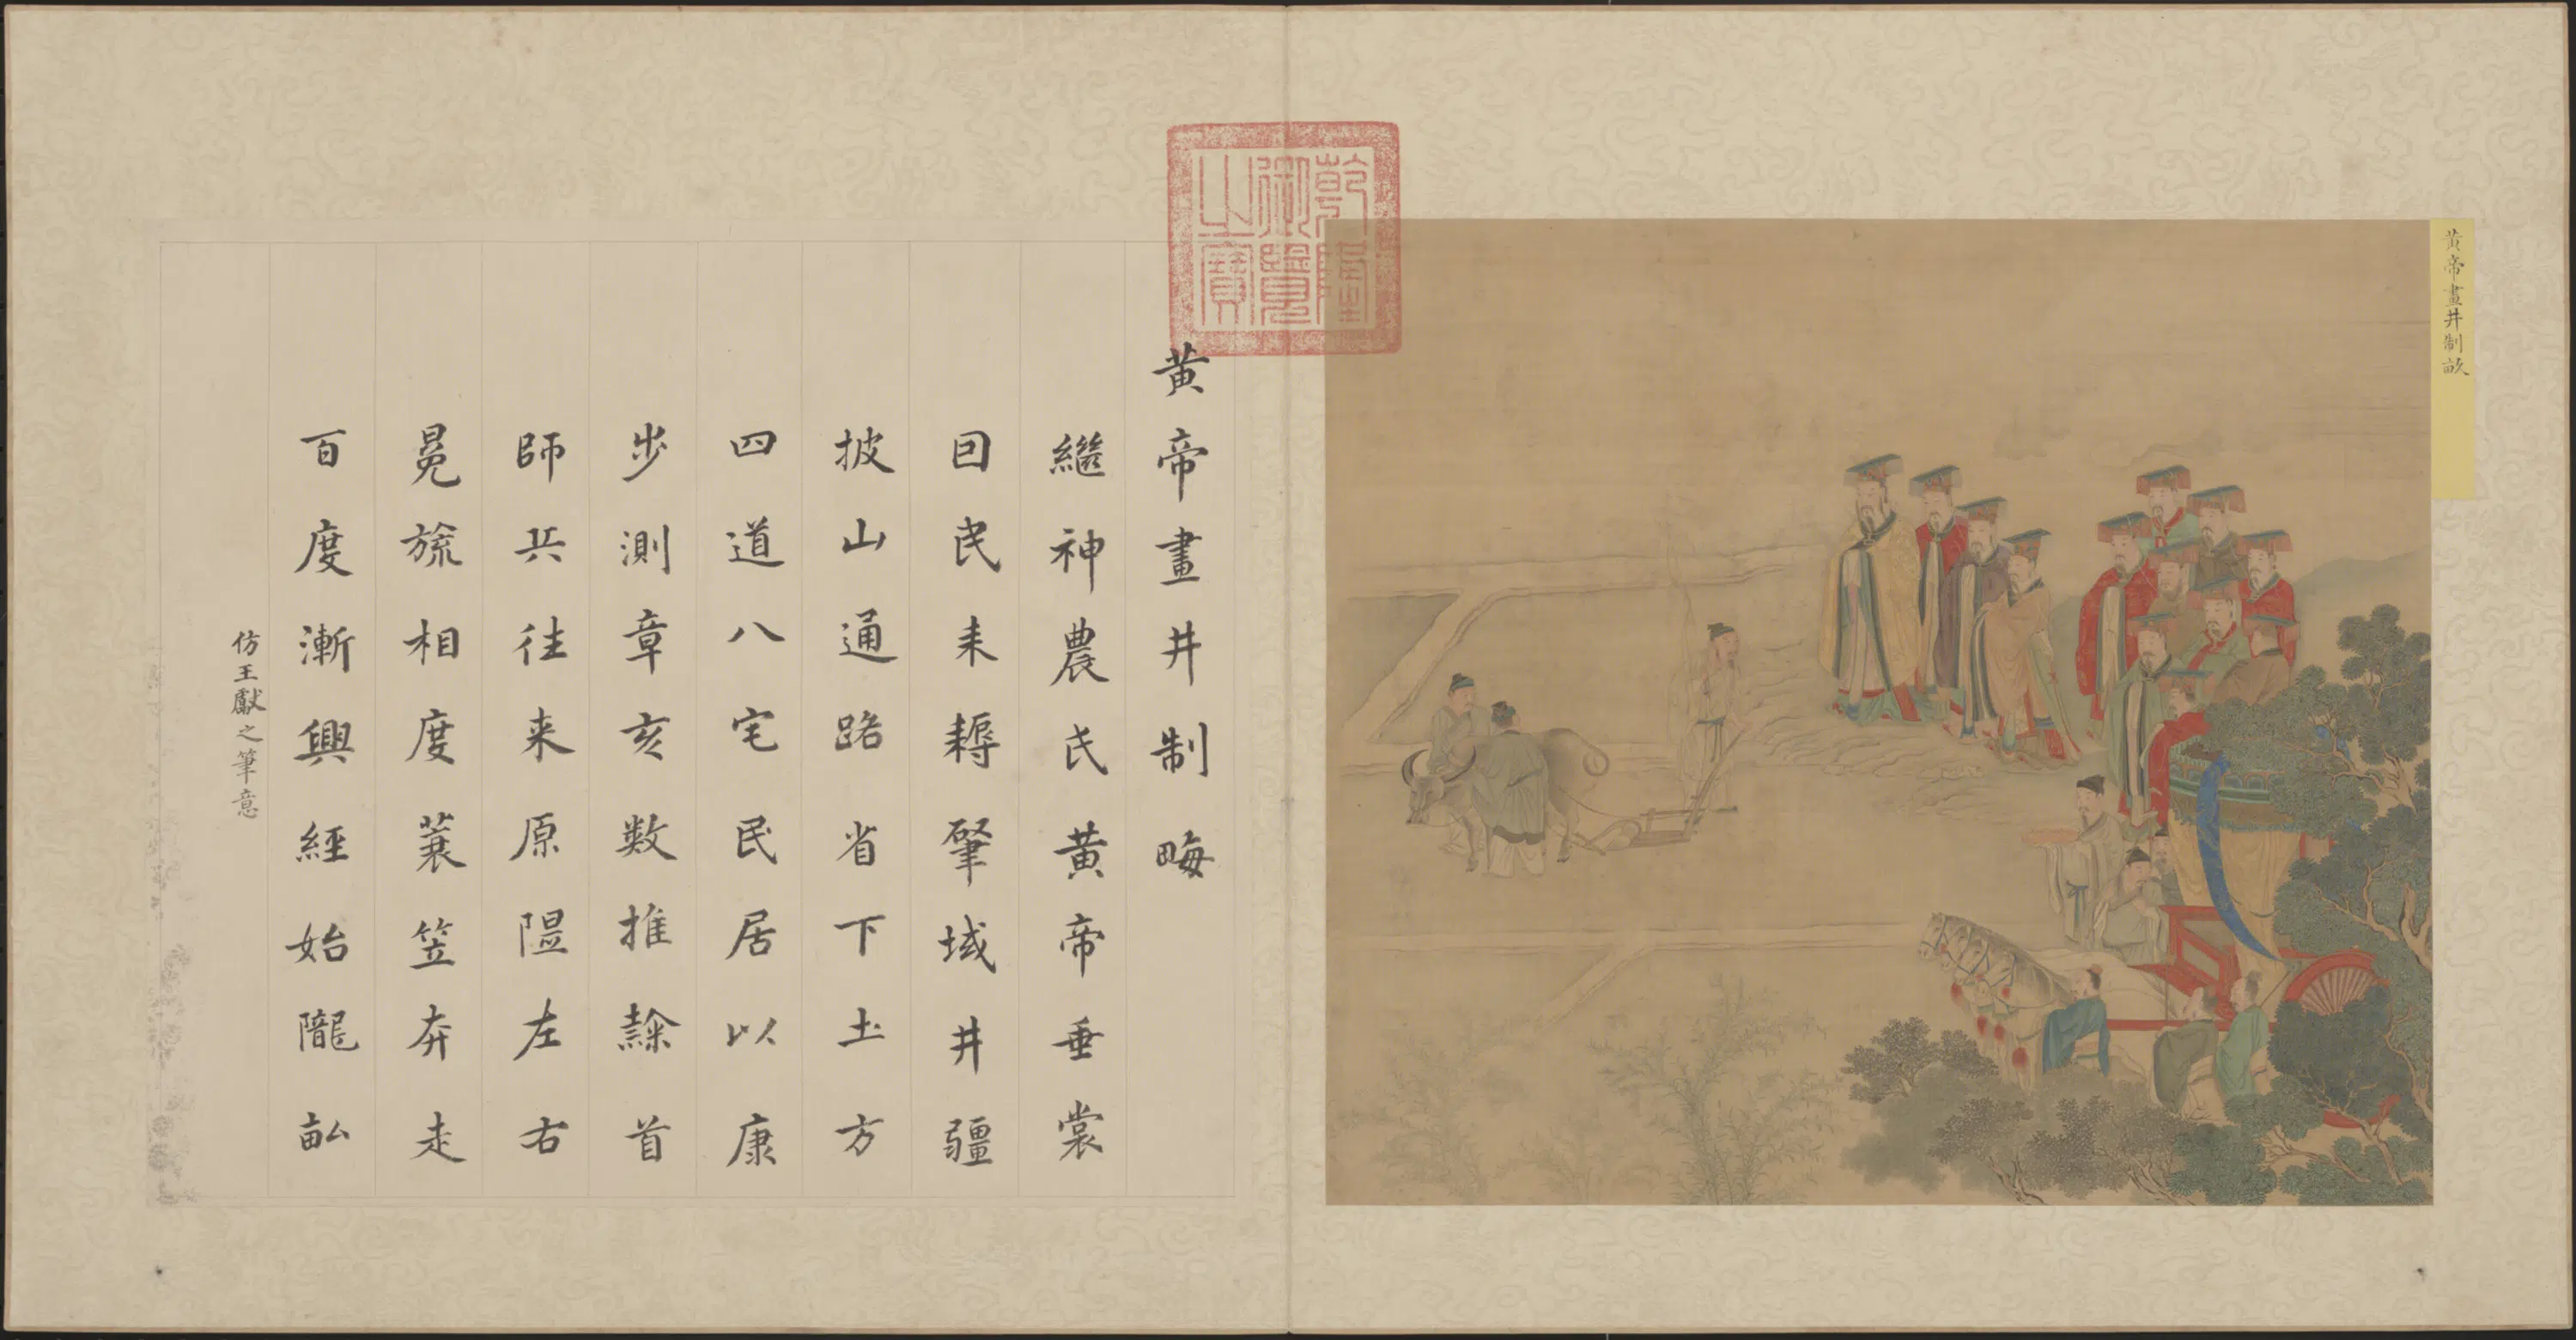 黄帝畫井制畝
乾隆御覽之寶
黄帝畫井制畮
繼神農氏黄帝垂裳
囙民耒耨肇域井疆
披山通路省下土方
四道八宅民居以康
步測章亥数推隸首
師兵往来原隰左右
冕旒相度蓑笠奔走
百度漸興經始隴畆
仿王獻之筆意